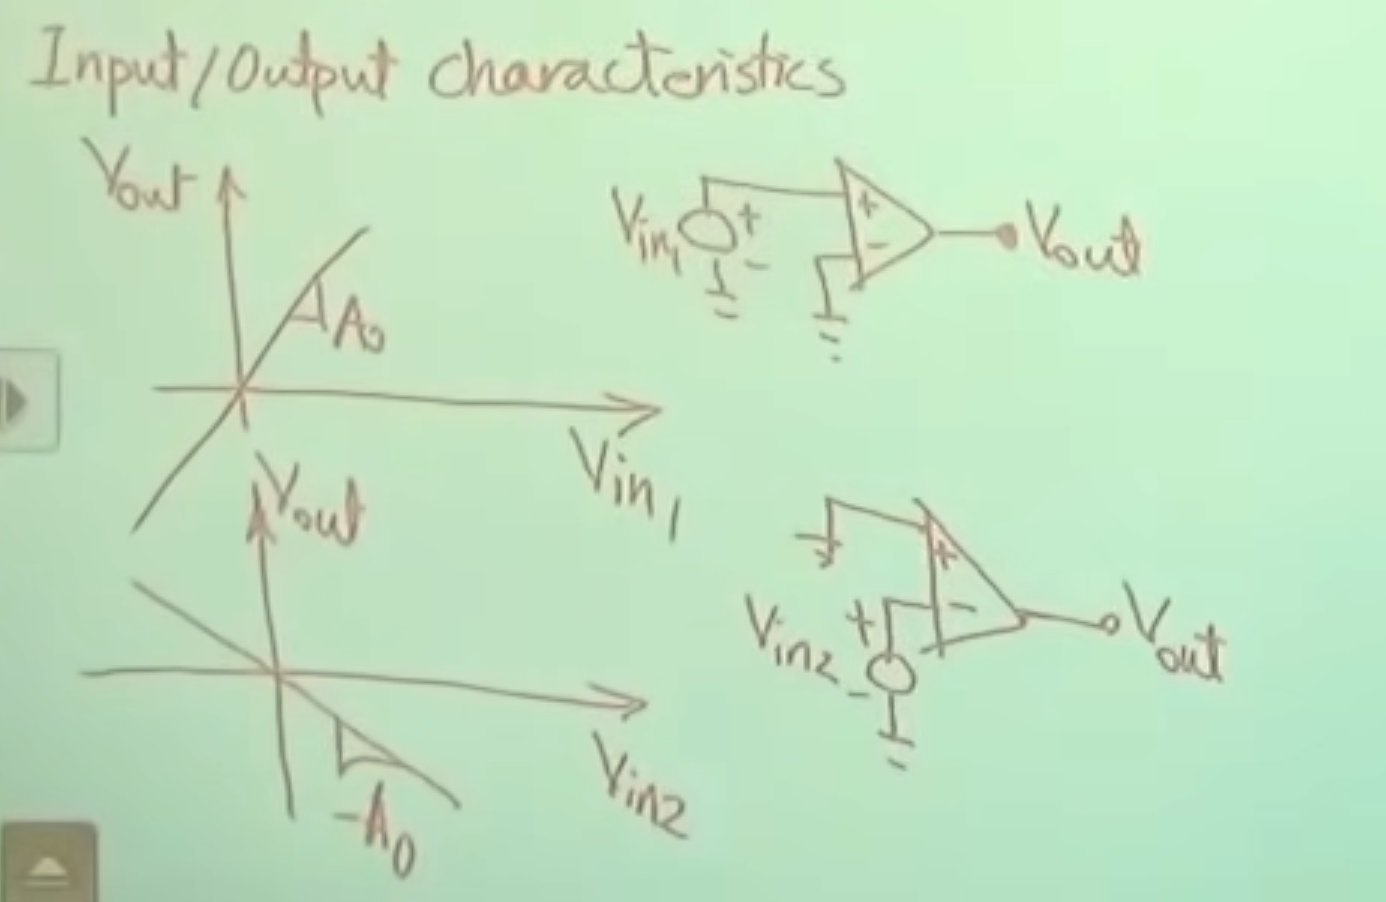 Input/Output characteristics
Vout
A0
Vin1
Vin1
+
-
+
-
Vout
Vout
-A0
Vin2
+
-
Vin2
+
-
Vout